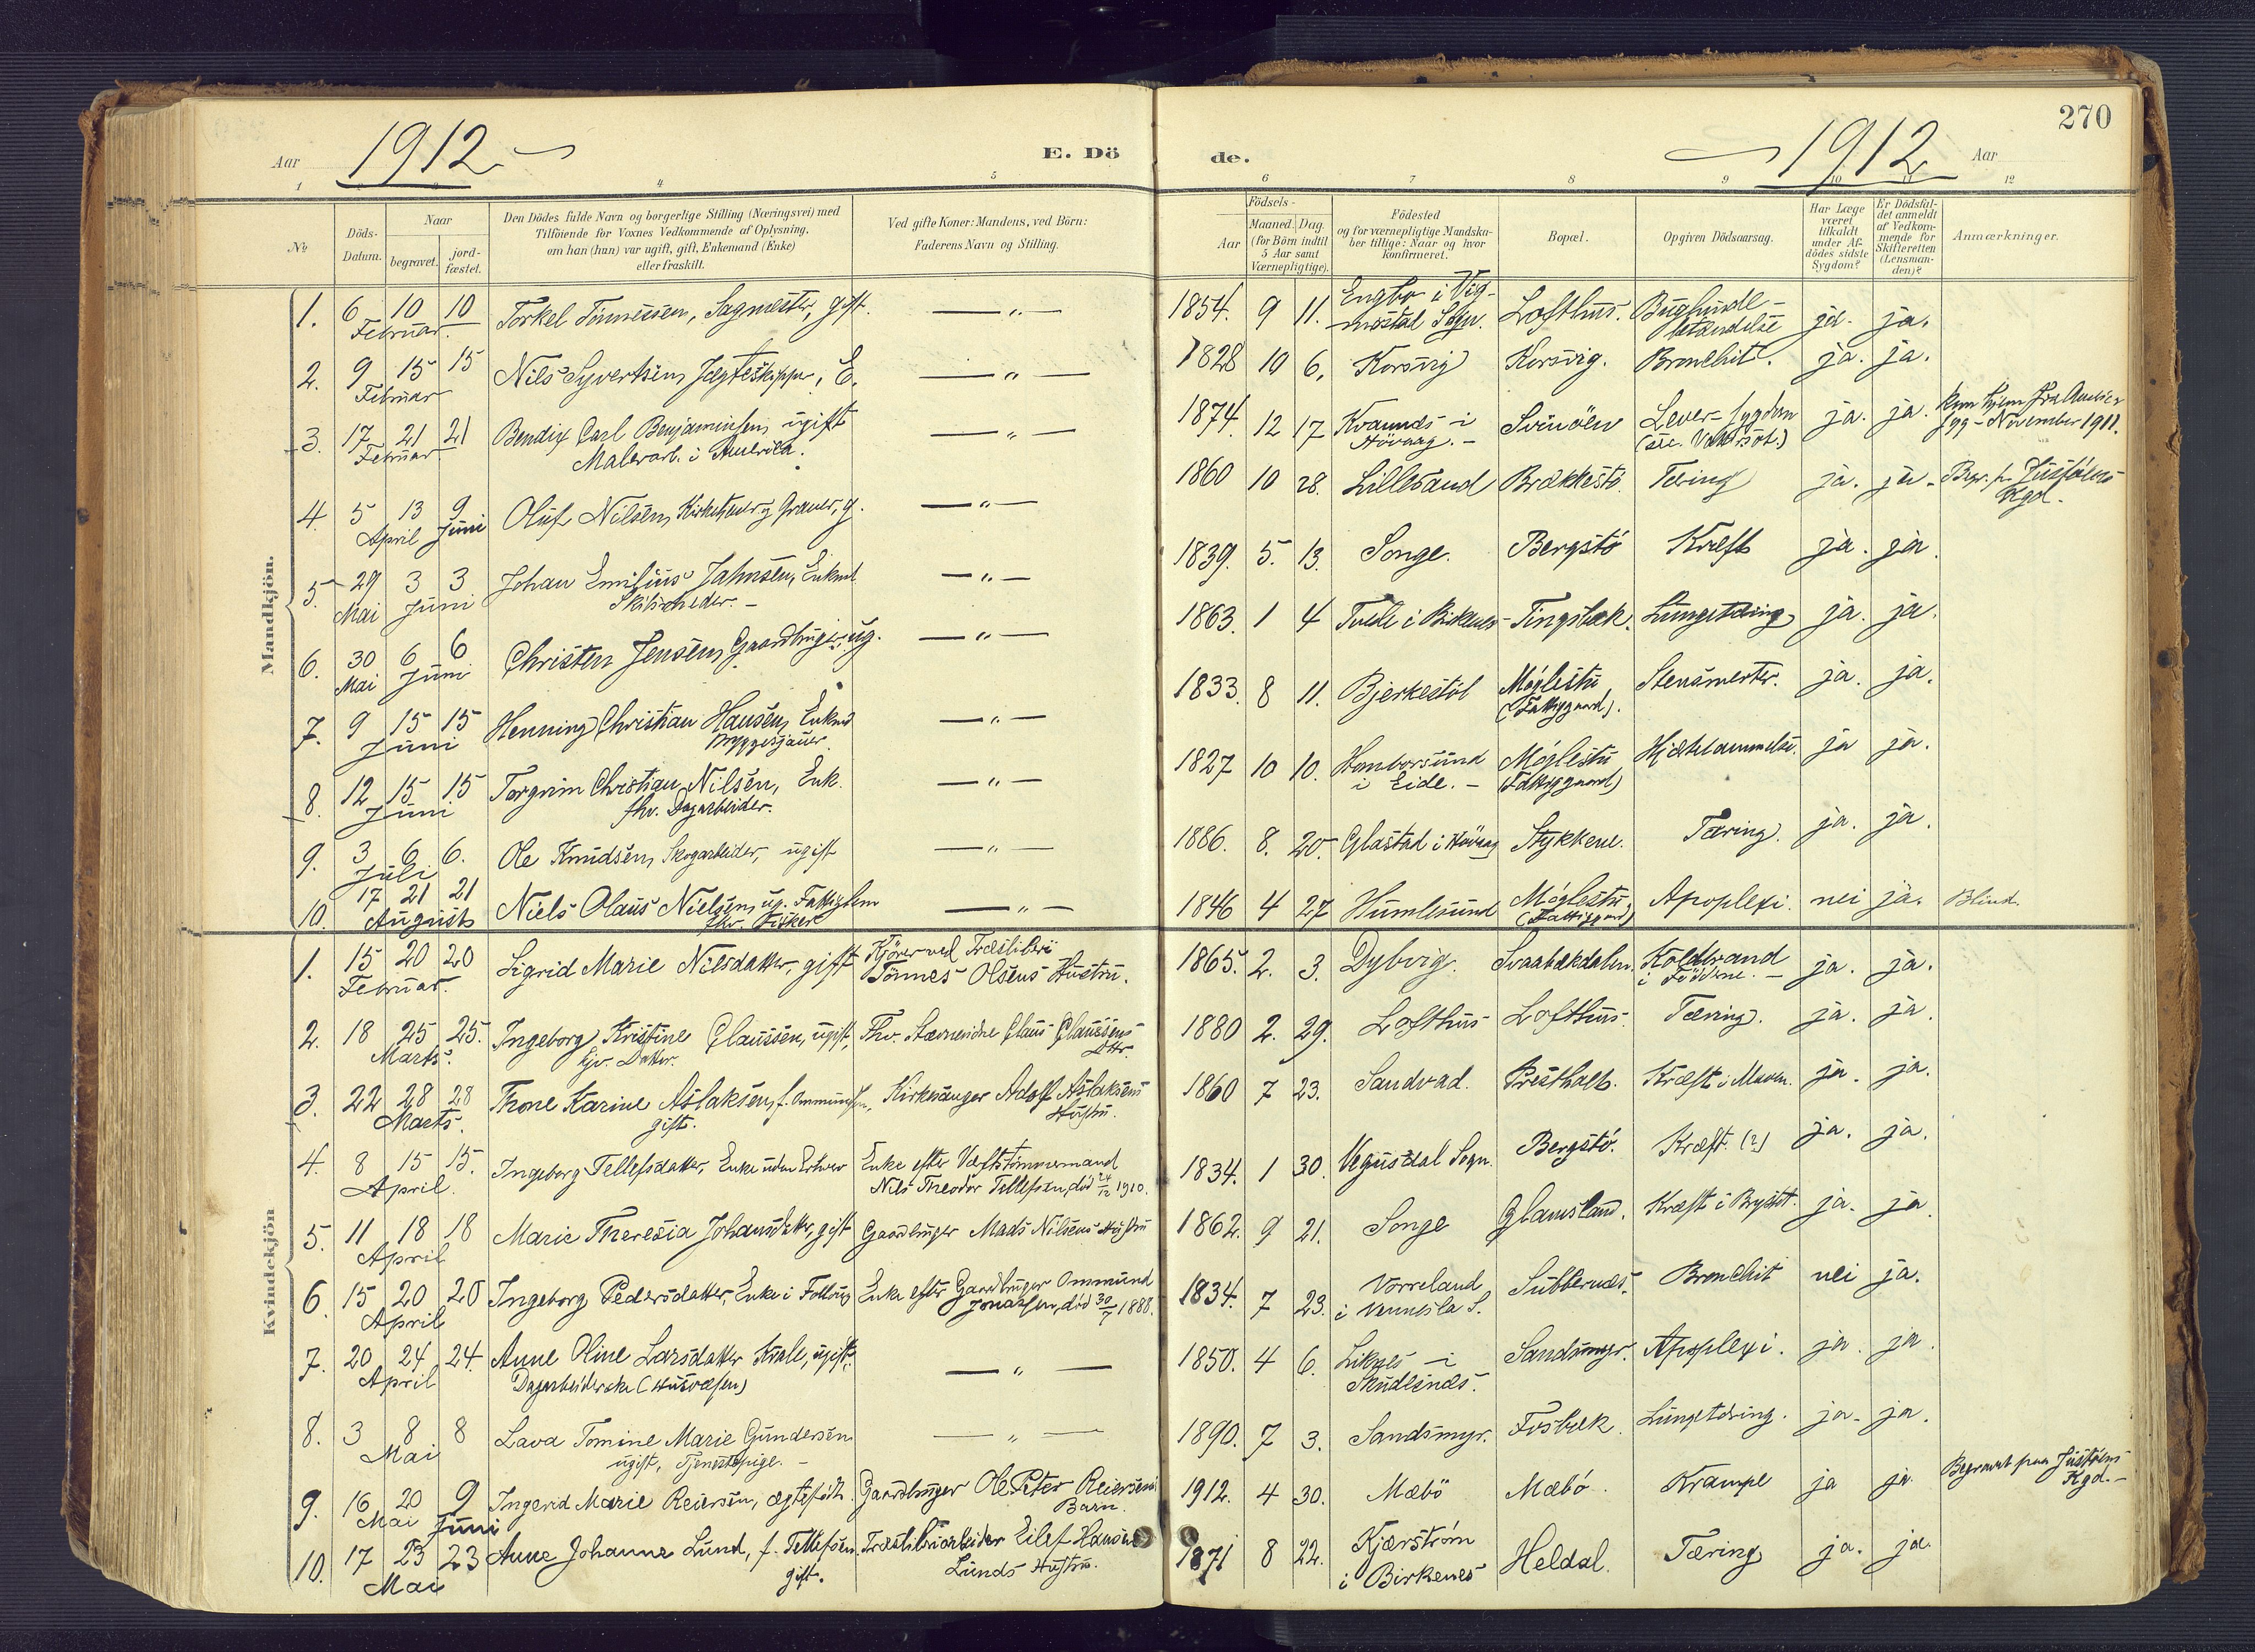 270
Aar 1912
E. Döde.
1912 Aar
1 2 3 4 5 6 7 8 9 10 11 12
№
Döds-Datum.
Naar
begravet.
jord-fæstet.
Den Dödes fulde Navn og borgerlige Stilling (Næringsvei) med
Tilföiende for Voxnes Vedkommende af Oplysning,
om han (hun) var ugift, gift, Enkemand (Enke)
eller fraskilt.
Ved gifte Koner: Mandens, ved Börn:
Faderens Navn og Stilling.
Födsels-
Aar
Maaned. Dag.
(for Börn indtil
5 Aar samt
Værnepligtige).
Födested
og for værnepligtige Mandska-
ber tillige: Naar og hvor
konfirmeret.
Bopæl.
Opgiven Dödsaarsag.
Har Læge
været
tilkaldt
under Af-
dödes sidste
Sygdom?
Er Dödsfal-
det anmeldt
af Vedkom-
mende for
Skifteretten
(Lensman-
den)?
Anmærkninger.
Mandkjön.
1. 6 10 10 Torkel Tönnessen, Sagmester, gift. — " — 1854. 9 11. Engbo i Vig- Lofthus. Bughinde- ja. ja.
Februar. mostad Sogn. betændelse
2. 9 15 15 Nils Syvertsen, Jægteskipper, E. — " — 1828 10 6. Korsvig Korsvig. Bronchit. ja. ja.
Februar
3. 17 21 21 Bendix Carl Benjaminsen, ugift — " — 1874. 12 17 Kvannes i Svinöen Lever-sygdom ja. ja. kom hjem fra Amerika
Februar Malerarb. i Amerika. Hövaag. - syg - November 1911.
4. 5 13 9 Oluf Nilsen, Kirketjener og Graver, g. — " — 1860 10 28. Lillesand Brækkestö. Tæring ja. ja. Begr. p. Justöens
April Juni Kgd.
5. 29 3 3 Johan Emilius Jahnsen, Enkmd. — " — 1839. 5. 13. Songe. Bergstö Kræft ja. ja.
Mai Juni
6. 30 6 6 Christen Jensen, Gaardbruger, ug. — " — 1863. 1 4 Tveide i Birkenes Tingsbæk. Lungetæring ja. ja.
Mai Juni
7. 9 15 15 Henning Christian Hansen, Enkmd — " — 1833. 8 11. Bjerkestöl Möglestu Stensmerter. ja. ja.
Juni Bryggesjauer. (Fattiggaard).
8. 12 15 15 Torgrim Christian Nilsen, Enk. — " — 1827 10 10. Homborsund Möglestu Hjertelammelse. ja ja.
Juni fhv. Dagarbeider. i Eide. - (Fattiggaard)
9. 3 6 6. Ole Knudsen, Skogarbeider, ugift — " — 1886. 8. 20. Glastad i Hövaag Stykkene. Tæring. ja. ja.
Juli
10. 17 21 21 Niels Olaus Nielsen, ug. Fattiglem — " — 1846 4 27 Humlesund Möglestu Apoplexi. nei ja. Blind.
August fhv. Fisker (Fattiggaard)
Kvindekjön
1. 15 20 20 Sigrid Marie Nilsdatter, gift Kjörer ved Træsliberi 1865. 2. 3. Dybvig. Svaabækdalen. Koldbrand ja. ja.
Februar. Tönnes Olsens Hustru. i Födderne. -
2. 18 25 25. Ingeborg Kristine Claussen, ugift, Fhv. Claus Claussens 1880 2. 29. Lofthus Lofthus. Tæring. ja. ja.
Marts. hjv. Datter. Dtr.
3. 22 28 28 Throne Karine Aslaksen, f. Ommundsen, Kirkesanger Adolf Aslaksens 1860 7 23. Sandvad. Presthalt. Kræft i Maven. ja. ja.
Marts. gift. Hustru.
4. 8 15 15. Ingeborg Tellefsdatter, Enke uden Erhverv Enke efter Værftstömmermand 1834. 1 30. Vegusdal Sogn. Bergstö. Kræft. (?) ja. ja.
April. Nils Theodor Tellefsen, död 24/12 1910.
5. 11 18 18 Marie Theresia Johansdatter, gift Gaardbruger Mads Nilsens Hustru 1862. 9 21. Songe Glamsland. Kræft i Brystet. ja. ja.
April
6. 15 20 20 Ingeborg Pedersdatter, Enke i Follaug Enke efter Gaardbruger Ommund 1834. 7 23. Vorreland Bronchit nei ja.
April Jonassen, död 30/7 1888. i Vennesla S.
7. 20 24 24. Anne Oline Larsdatter Krale, ugift. — " — 1850. 4 6. Liknes i Sandsmyr. Apoplexi. ja. ja.
April Dagarbeiderske (Husvæsen) Skudesnæs.
8. 3 8 8 Lava Tomine Marie Gundersen — " — 1890. 7 3. Sandsmyr. Fosbæk. Lungetæring. ja. ja.
Mai ugift, Tjenestepige. -
9. 16 20 9 Ingerid Marie Reiersen, ægteföd. Gaardbruger Ole Peter Reiersens 1912. 4 30. Mæbö Mæbö. Krampe ja ja Begravet paa Justöens
Mai Juni Barn. Kgd. -
10. 17 23 23 Anne Johanne Lund, f. Tellefsen. Træsliberiarbeider Eilef Hansen 1871 8 22. Kjærström Heldal. Tæring ja. ja.
Mai gift. Lunds Hustru. i Birkenes